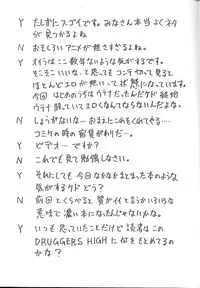 Y たしかにスゴイです。みなさん本当よくネタ
が見つかるよん
N おもしろいアニメが無さすぎるよね。
Y オイラはここ数年ないような気がするです。
そこそこいいなと思ってもコンテ切って見ると
ほとんどエロが無いって状態になっています。
今回はじめのうちはウテナだったんだケド結局
ウテナ旅していてエロくなんてならないんだよな。
N しょうがないな…おまえにこれをくれてやる…
コミケの時の宿敵がわりだ…。
Y ビデオ…ですか?
N これで見て勉強しなさい。
Y それにしても今回なかなかまとまった本のような
気がするケドどう?
N 前回とくらべると質がイイとまぁいろいろな
意味で濃い本になったんじゃないかな。
Y いつも思っていたことだけど読者はこの
DRUGGERS HIGHに何をもとめてるの
かな?